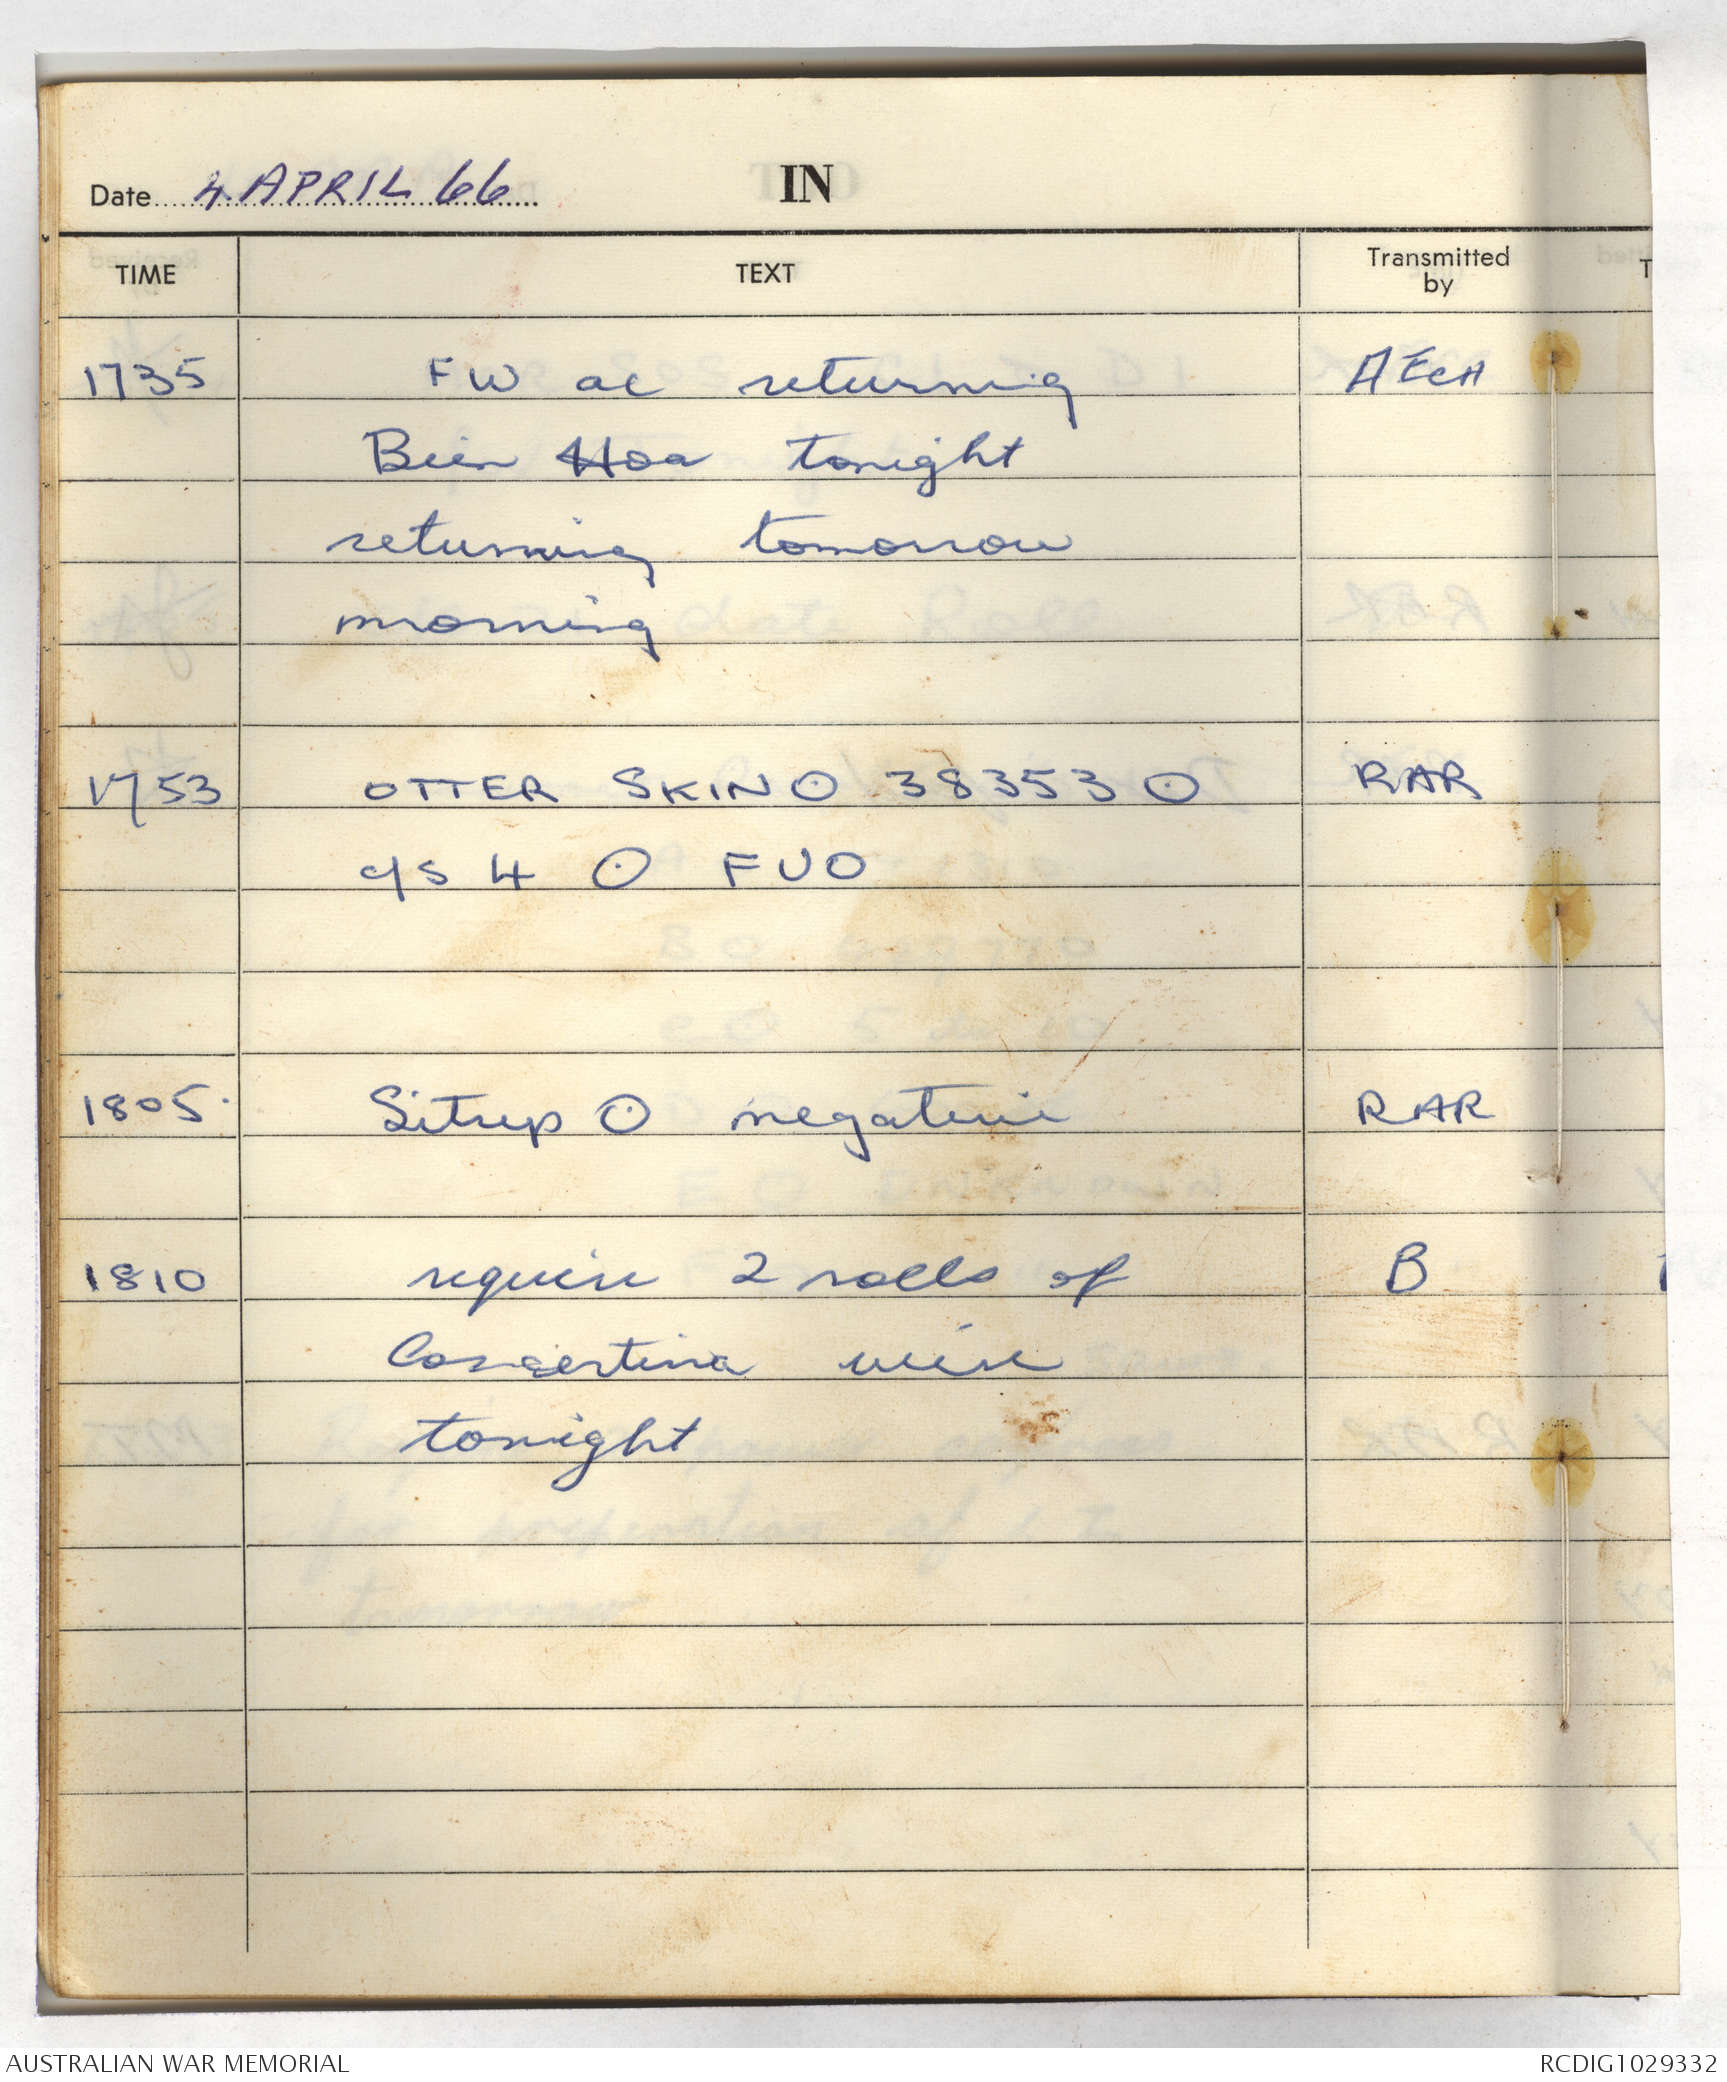 Date 4 APRIL 66
IN
TIME TEXT Transmitted by
1735 FW ac returning
Bien Hoa tonight
returning tomorrow
morning
1753 OTTER SKIN ⊙ 38353 ⊙ RAR
c/s 4 ⊙ FUO
1805. Sitrep ⊙ negative RAR
1810 require 2 rolls of B
Concertina wire
tonight
AUSTRALIAN WAR MEMORIAL RCDIG1029332